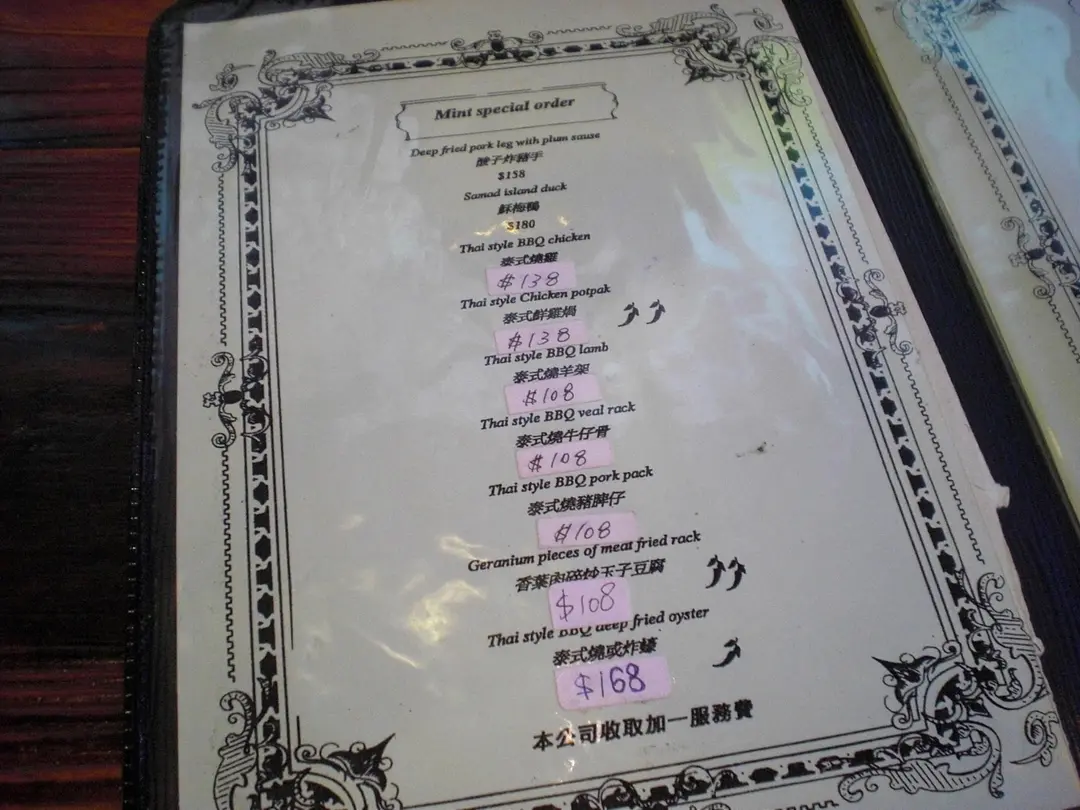 Mint special order
Deep fried pork leg with plum sause
酸子炸豬手
$158
Samod island duck
蘇梅鴨
$180
Thai style BBQ chicken
泰式燒雞
$138
Thai style Chicken potpak
泰式鮮雞煱
$138
Thai style BBQ lamb
泰式燒羊架
$108
Thai style BBQ veal rack
泰式燒牛仔骨
$108
Thai style BBQ pork pack
泰式燒豬脾仔
$108
Geranium pieces of meat fried rack
香葉肉碎炒玉子豆腐
$108
Thai style BBQ deep fried oyster
泰式燒或炸蠔
$168
本公司收取加一服務費